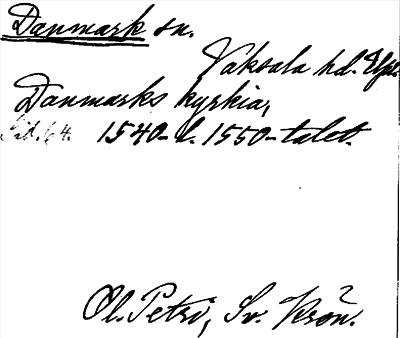 Danmark sn.
Vaksala hd. Upl.
Danmarks kyrkia,
Sid. 64. 1540- l. 1550-talet.
Ol. Petri, Sv. Krön.